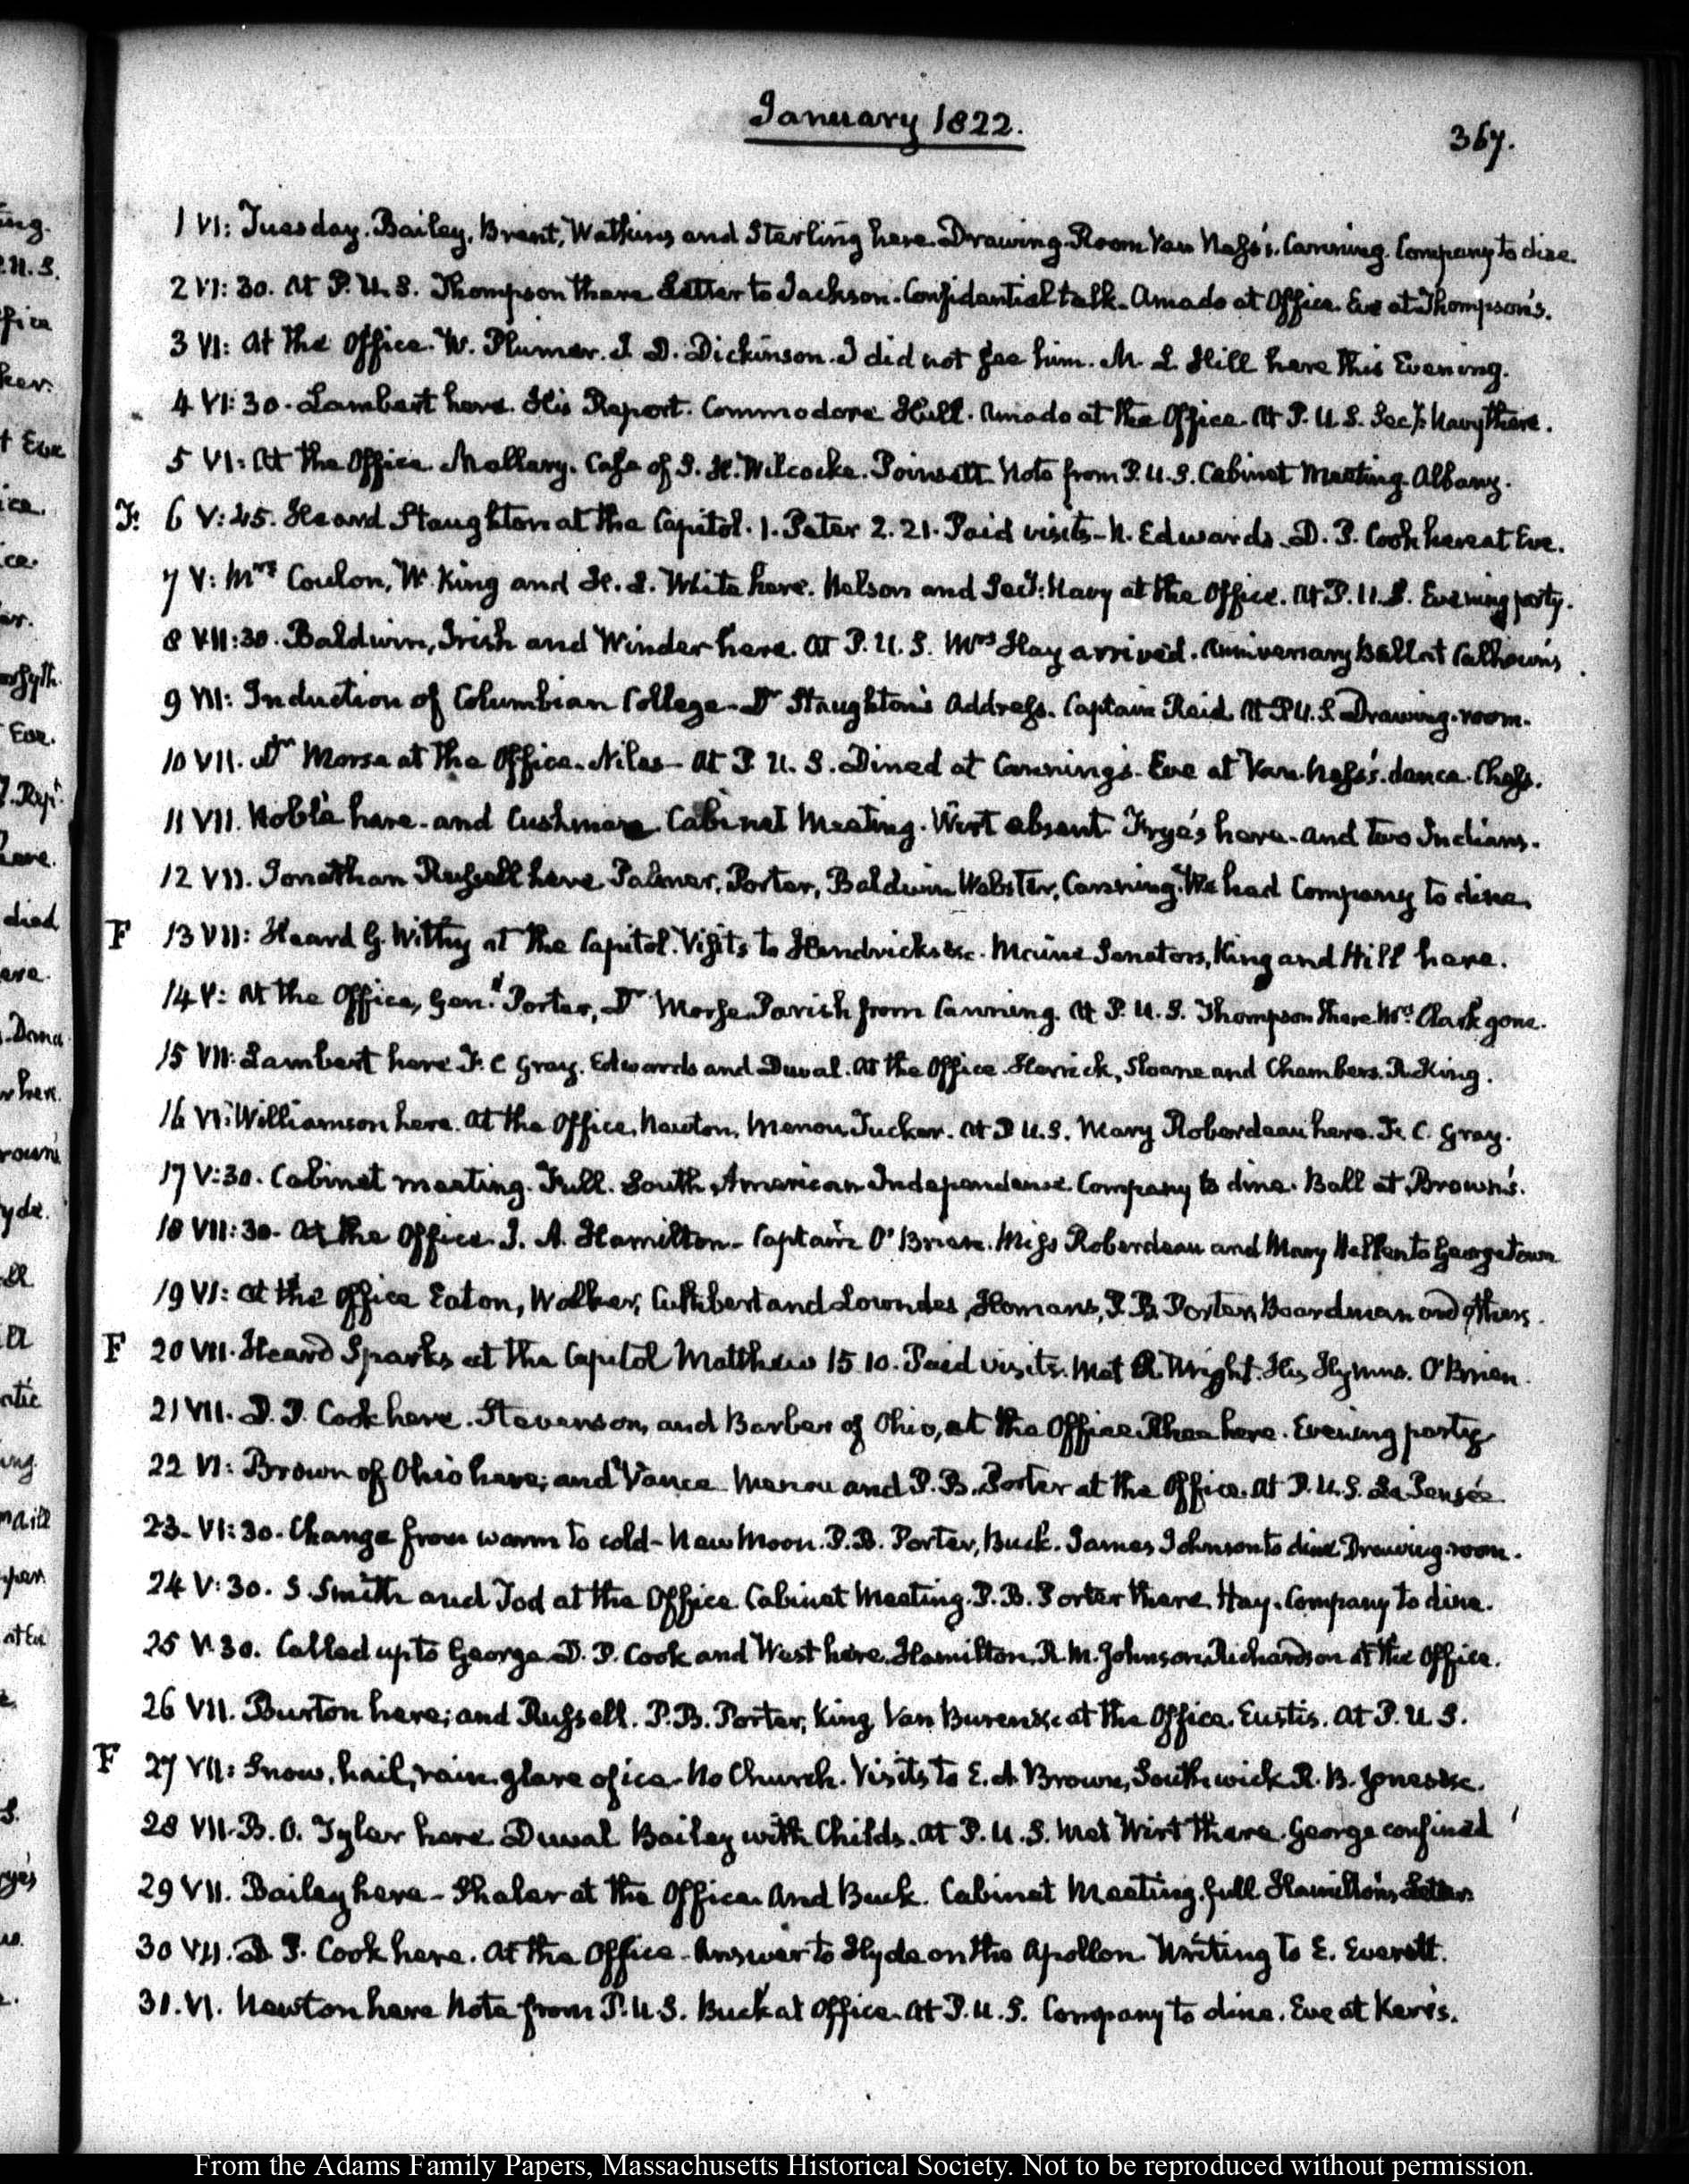 January 1822.
367.
1 VI: Tuesday. Bailey, Brent, Watkins and Sterling here. Drawing-Room Van Ness's. Canning. Company to dine.
2 VI: 30. At P. U. S. Thompson there Letter to Jackson. Confidential talk. Amado at Office. Eve at Thompson's.
3 VI: At the Office. W. Plumer. J. D. Dickinson. I did not see him. M. L. Hill here this Evening.
4 VI: 30. Lambert here. His Report. Commodore Hull. Amado at the Office. At P. U. S. Secy: Navy there.
5 VI: At the Office. Mallary. Case of S. H. Wilcocke. Poinsett. Note from P. U. S. Cabinet Meeting. Albany.
F: 6 V: 45. Heard Staughton at the Capitol. 1. Peter 2. 21. Paid visits- N. Edwards. D. P. Cook here at Eve.
7 V: Mrs Coulon, W. King and H. L. White here. Nelson and Secy: Navy at the Office. At P. U. S. Evening party.
8 VII: 30. Baldwin, Irish and Winder here. At P. U. S. Mrs Hay arrived. Anniversary Ball at Calhoun's
9 VII: Induction of Columbian College- Dr Staughton's Address. Captain Reid. At P. U. S. Drawing-room.
10 VII. Dr Morse at the Office. Niles- At P. U. S. Dined at Canning's. Eve at Van Ness's. dance. Chess.
11 VII. Noble here- and Cushman Cabinet Meeting. Wirt absent Frye's here- and two Indians.
12 VII. Jonathan Russell here Palmer, Porter, Baldwin Webster, Canning. We had Company to dine.
F 13 VII: Heard G. Withy at the Capitol. Visits to Hendricks &c. Maine Senators, King and Hill here.
14 V: At the Office, Genl. Porter, Dr Morse Parish from Canning. At P. U. S. Thompson there Mrs. Clark gone.
15 VII: Lambert here F. C Gray. Edwards and Duval. At the Office. Herrick, Sloane and Chambers. R. King.
16 VI: Williamson here. At the Office, Newton, Menou, Tucker. At P U. S. Mary Roberdeau here. F. C. Gray.
17 V: 30. Cabinet meeting. Full. South American Independence. Company to dine. Ball at Brown's.
18 VII: 30- At the Office J. A. Hamilton- Captain O'Brien. Miss Roberdeau and Mary Hellen to Georgetown
19 VI: At the Office Eaton, Walker, Cuthbert and Lowndes, Homans, P. B. Porter, Boardman and others.
F 20 VII. Heard Sparks at the Capitol Matthew 15. 10. Paid visits. Met R. Wright. His Hymns. O'Brien.
21 VII. D. P. Cook here. Stevenson, and Barber of Ohio, at the Office Rhea here. Evening party
22 VI: Brown of Ohio here; and Vance Menou and P. B. Porter at the Office. At P. U. S. La Pensée
23. VI: 30. Change from warm to cold- New Moon. P. B. Porter, Buck. James Johnson to dine Drawing-room.
24 V: 30. S Smith and Tod at the Office. Cabinet Meeting. P. B. Porter there Hay. Company to dine.
25 V. 30. Called up to George. D. P. Cook and West here. Hamilton, R. M. Johnson, Richardson at the Office.
26 VII. Burton here; and Russell. P. B. Porter, King Van Buren &c at the Office. Eustis. At P. U. S.
F 27 VII: Snow, hail, rain. glare of ice- No Church. Visits to E. A. Brown, Southwick R. B. Jones &c.
28 VII. B. O. Tyler here. Duval Bailey with Childs. At P. U. S. Met Wirt there. George confined
29 VII. Bailey here- Shaler at the Office. And Buck. Cabinet Meeting. full Hamilton's Letter.
30 VII. D P. Cook here. At the Office- Answer to Hyde on the Apollon. Writing to E. Everett.
31. VI. Newton here Note from P. U. S. Buck at Office. At P. U. S. Company to dine. Eve at Kerr's.
From the Adams Family Papers, Massachusetts Historical Society. Not to be reproduced without permission.